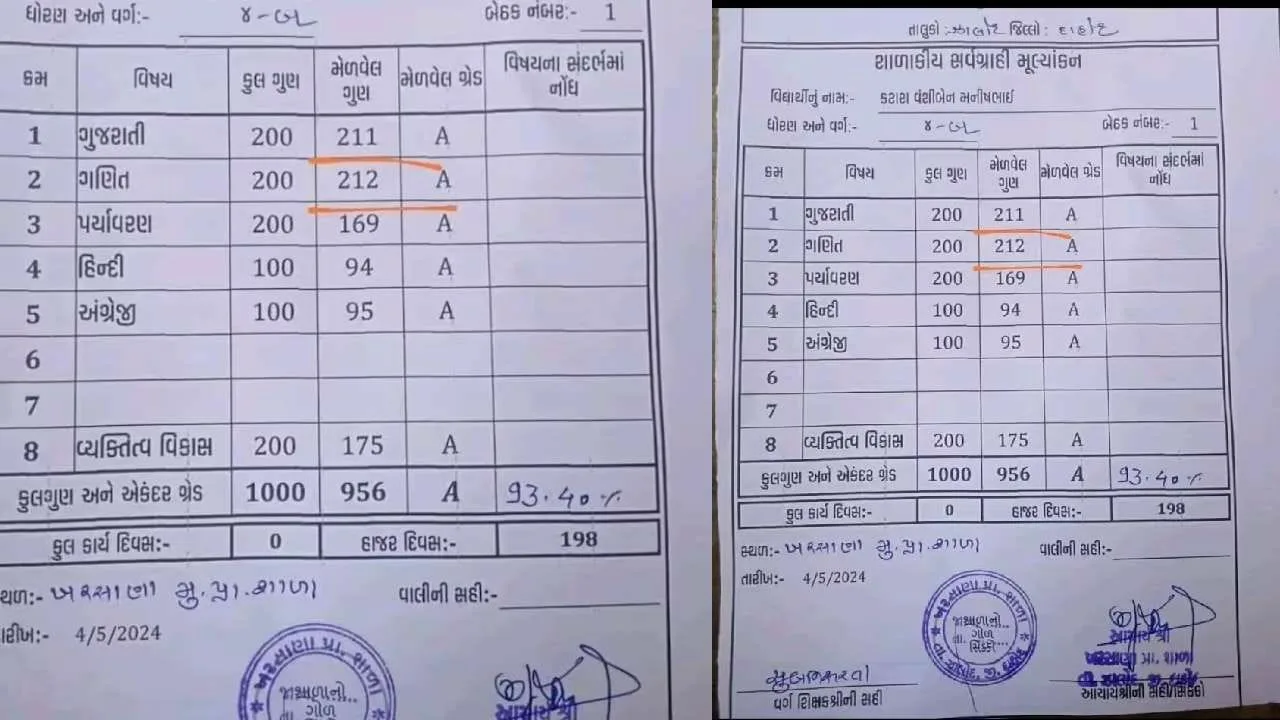 ધોરણ અને વર્ગ:- ૪-બ બેઠક નંબર:- 1
ક્રમ વિષય કુલ ગુણ મેળવેલ ગુણ મેળવેલ ગ્રેડ વિષયના સંદર્ભમાં નોંધ
1 ગુજરાતી 200 211 A
2 ગણિત 200 212 A
3 પર્યાવરણ 200 169 A
4 હિન્દી 100 94 A
5 અંગ્રેજી 100 95 A
6
7
8 વ્યક્તિત્વ વિકાસ 200 175 A
કુલગુણ અને એકંદર ગ્રેડ 1000 956 A 93.40%
કુલ કાર્ય દિવસ:- 0 હાજર દિવસ:- 198
સ્થળ:- ખરસાણા મુ.પ્રા.શાળા વાલીની સહી:-
તારીખ:- 4/5/2024
શાળાનો..
ગોળ
તાલુકો :ઝાલોદ જિલ્લો : દાહોદ
શાળાકીય સર્વગ્રાહી મૂલ્યાંકન
વિદ્યાર્થીનું નામ:- કટારા વંશીબેન મનીષભાઈ
ધોરણ અને વર્ગ:- ૪-બ બેઠક નંબર:- 1
ક્રમ વિષય કુલ ગુણ મેળવેલ ગુણ મેળવેલ ગ્રેડ વિષયના સંદર્ભમાં નોંધ
1 ગુજરાતી 200 211 A
2 ગણિત 200 212 A
3 પર્યાવરણ 200 169 A
4 હિન્દી 100 94 A
5 અંગ્રેજી 100 95 A
6
7
8 વ્યક્તિત્વ વિકાસ 200 175 A
કુલગુણ અને એકંદર ગ્રેડ 1000 956 A 93.40%
કુલ કાર્ય દિવસ:- 0 હાજર દિવસ:- 198
સ્થળ:- ખરસાણા મુ.પ્રા.શાળા વાલીની સહી:-
તારીખ:- 4/5/2024
શાળાનો..
ગોળ
સિક્કો...
આચાર્ય શ્રી
ખરસાણા પ્રા. શાળા
વર્ગ શિક્ષકશ્રીની સહી આચાર્યશ્રીની સહી/સિક્કો